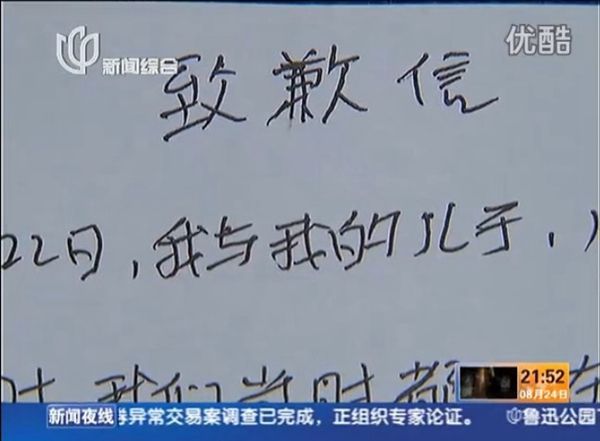 新闻综合
优酷
致歉信
22日,我与我的儿子,
时 我们当时都 在
21:52
08月24日
新闻夜线
异常交易案调查已完成，正组织专家论证。
鲁迅公园